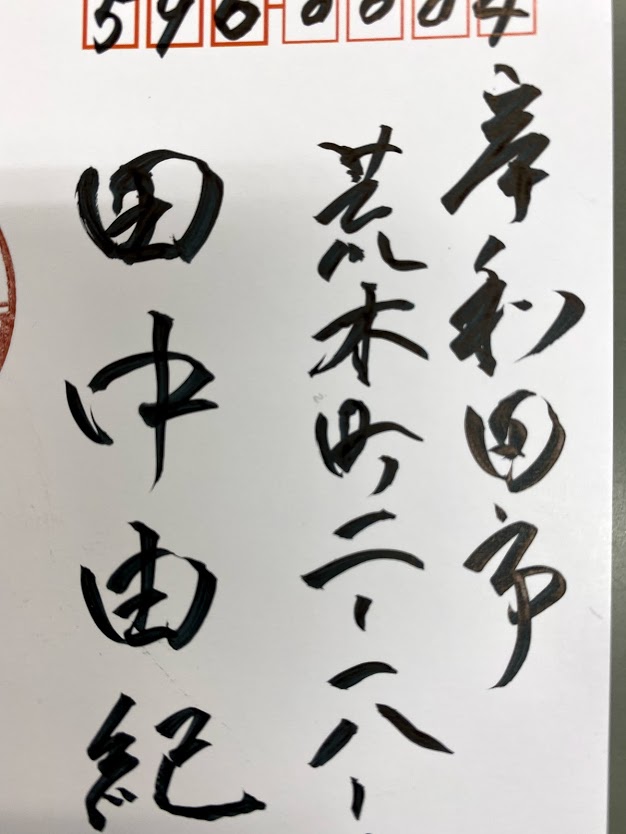 596-0004
岸和田市
荒木町二-一八-
田中由紀